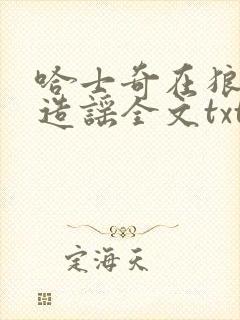 哈士奇在狼
造謠全文txt
定海天